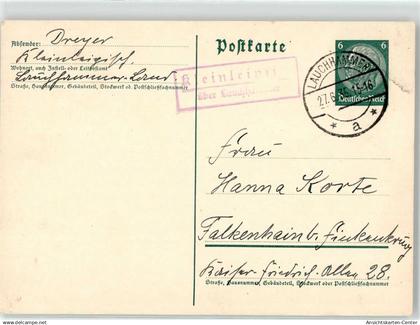 Absender: Dreyer
Kleinleipisch
Wohnort, auch Zustell- oder Leitpostamt
Lauchhammer-Land
Straße, Hausnummer, Gebäudeteil, Stockwerk od. Postschließfachnummer
Postkarte
Kleinleipisch
über Lauchhammer
LAUCHHAMMER
27.6.35.15-16
* a *
6 6
Deutsches Reich
Frau
Hanna Korte
Falkenhain b. Finkenkrug
Kaiser-Friedrich-Allee 28.
Straße, Hausnummer, Gebäudeteil, Stockwerk oder Postschließfachnummer
Ansichtskarten-Center